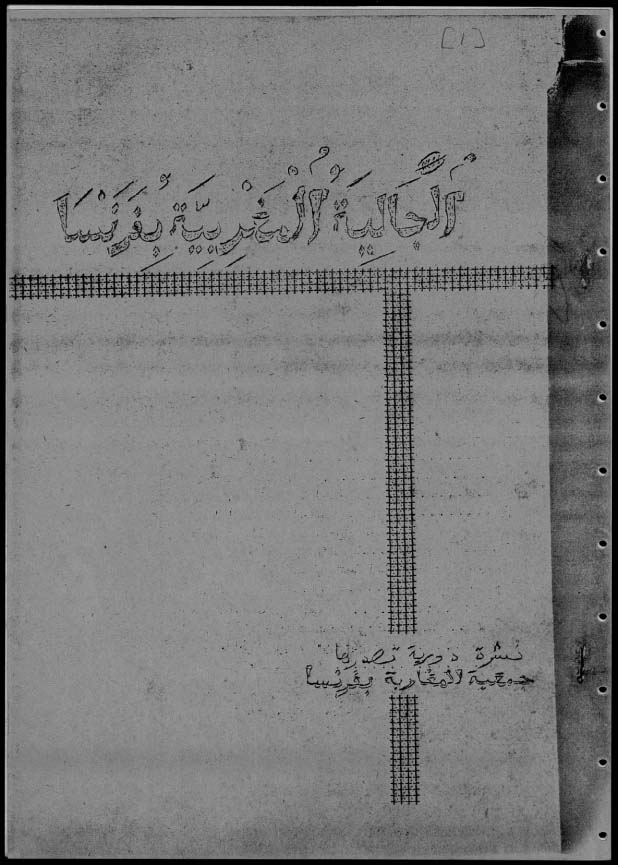 [1]
اَلْجَالِيَةُ الْمَغْرِبِيَّةُ بِفَرَنْسَا
نشرة دورية تصدرها
جمعية المغاربة بفرنسا